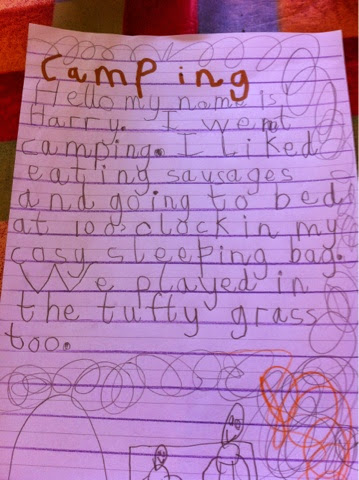 Camping
Hello my name is
Harry. I went
camping. I Liked
eating sausages
and going to bed
at 10 o,clock in my
casy sleeping bag.
We played in
the tufty grass
too.